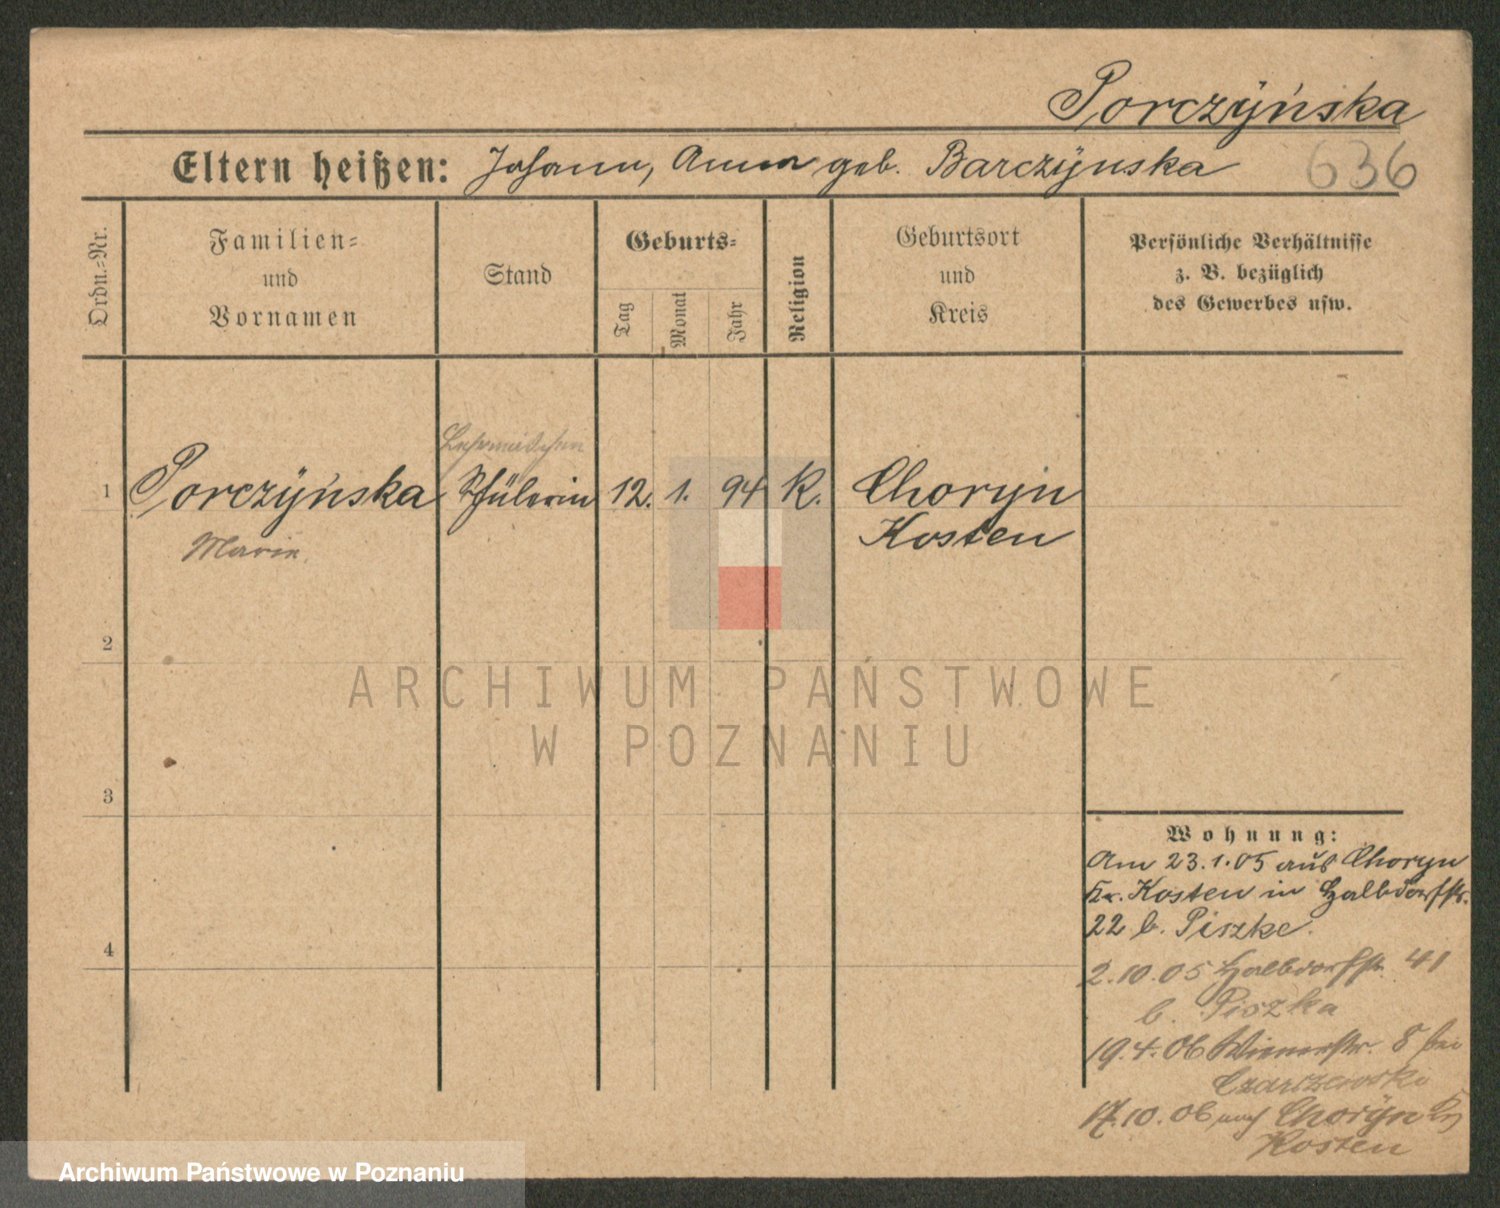 Porczyńska
Eltern heißen: Johann, Anna geb. Barczynska
636
Ordn.-Nr.
Familien-
und
Vornamen
Stand
Geburts-
Tag
Monat
Jahr
Religion
Geburtsort
und
Kreis
Persönliche Verhältnisse
z. B. bezüglich
des Gewerbes usw.
Lehrmädchen
1 Porczyńska Schülerin 12. 1. 94 K. Choryn
Marie Kosten
2
ARCHIWUM PAŃSTWOWE
W POZNANIU
3
4
Wohnung:
Am 23.1.05 aus Choryn
Kr. Kosten in Halbdorfstr.
22 b. Piszke.
2.10.05 Halbdorfstr. 41
b. Piszka
19.4.06 Wienerstr. 8 bei
Czarczewski
17.10.06 nach Choryn Kr
Kosten
Archiwum Państwowe w Poznaniu